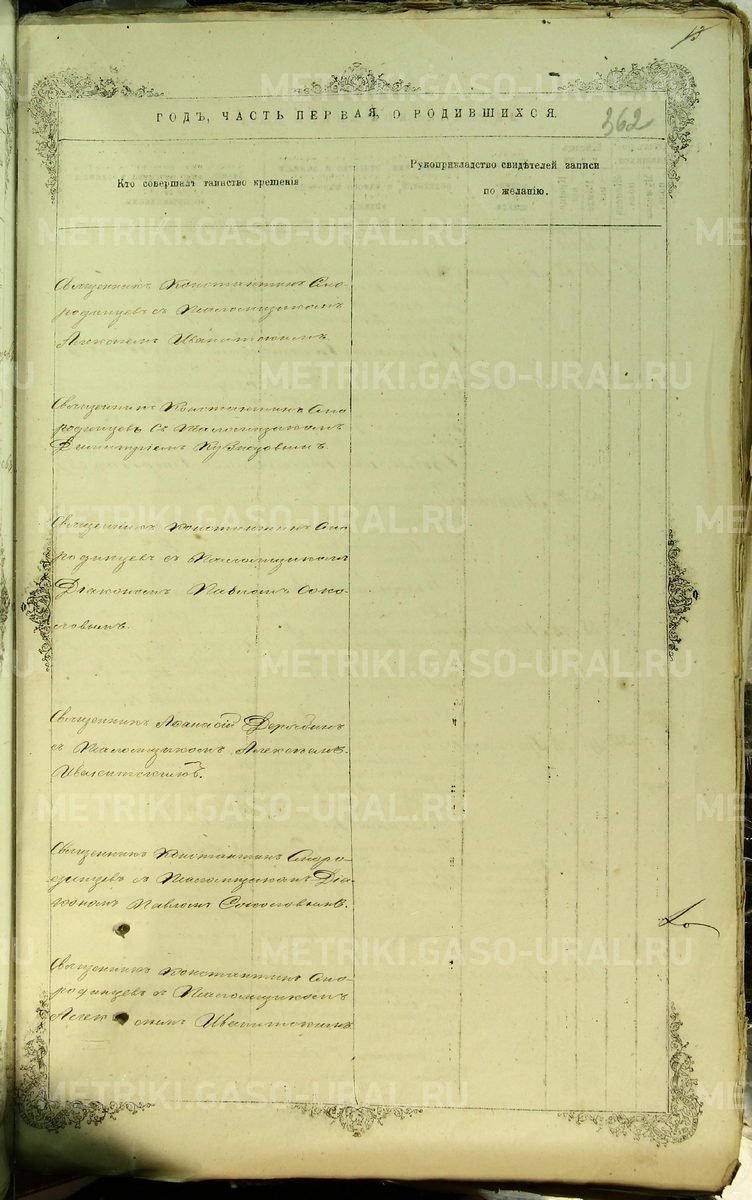 13
362
ГОДЪ, ЧАСТЬ ПЕРВАЯ, О РОДИВШИХСЯ.
Кто совершалъ таинство крещенія
Рукоприкладство свидѣтелей записи
по желанію.
Священникъ Константинъ Ско-
родинцевъ съ Псаломщикомъ
Алексѣемъ
Священникъ Константинъ Ско-
родинцевъ съ Псаломщикомъ
Димитріемъ
Священникъ Константинъ Ско-
родинцевъ съ Псаломщикомъ
Діакономъ Павломъ Соко-
ловымъ.
Священникъ Аѳанасій
съ Псаломщикомъ
Священникъ Константинъ Скоро-
динцевъ съ Псаломщикомъ Діа-
кономъ Павломъ Соколовымъ.
Священникъ Константинъ Ско-
родинцевъ съ Псаломщикомъ
METRIKI.GASO-URAL.RU